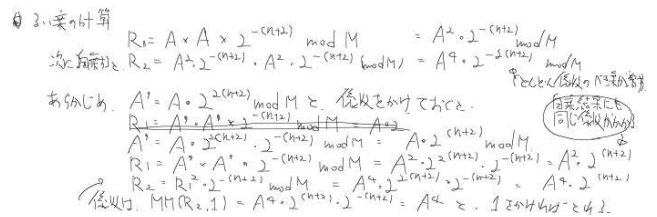 るい乗の計算
R₁ = A × A × 2^-(n+2) mod M = A²・2^-(n+2) mod M
次に自乗すると R₂ = A²・2^-(n+2)・A²・2^-(n+2)・2^-(n+2) mod M = A⁴・2^-3(n+2) mod M
どんどん係数のべき乗が
あらかじめ、A' = A・2^2(n+2) mod M と、係数をかけておくと、
自乗結果にも
同じ係数がかかる
R₁ = A'・A'・2^-(n+2) mod M = A・2
A' = A・2^2(n+2)・2^-(n+2) mod M = A・2^(n+2) mod M
R₁ = A' × A'・2^-(n+2) mod M = A²・2^2(n+2)・2^-(n+2) = A²・2^(n+2)
R₂ = R₁²・2^-(n+2) mod M = A⁴・2^2(n+2)・2^-(n+2) = A⁴・2^(n+2)
係数は、MM(R₂,1) = A⁴・2^(n+2)・2^-(n+2) = A⁴ と、1をかければとれる